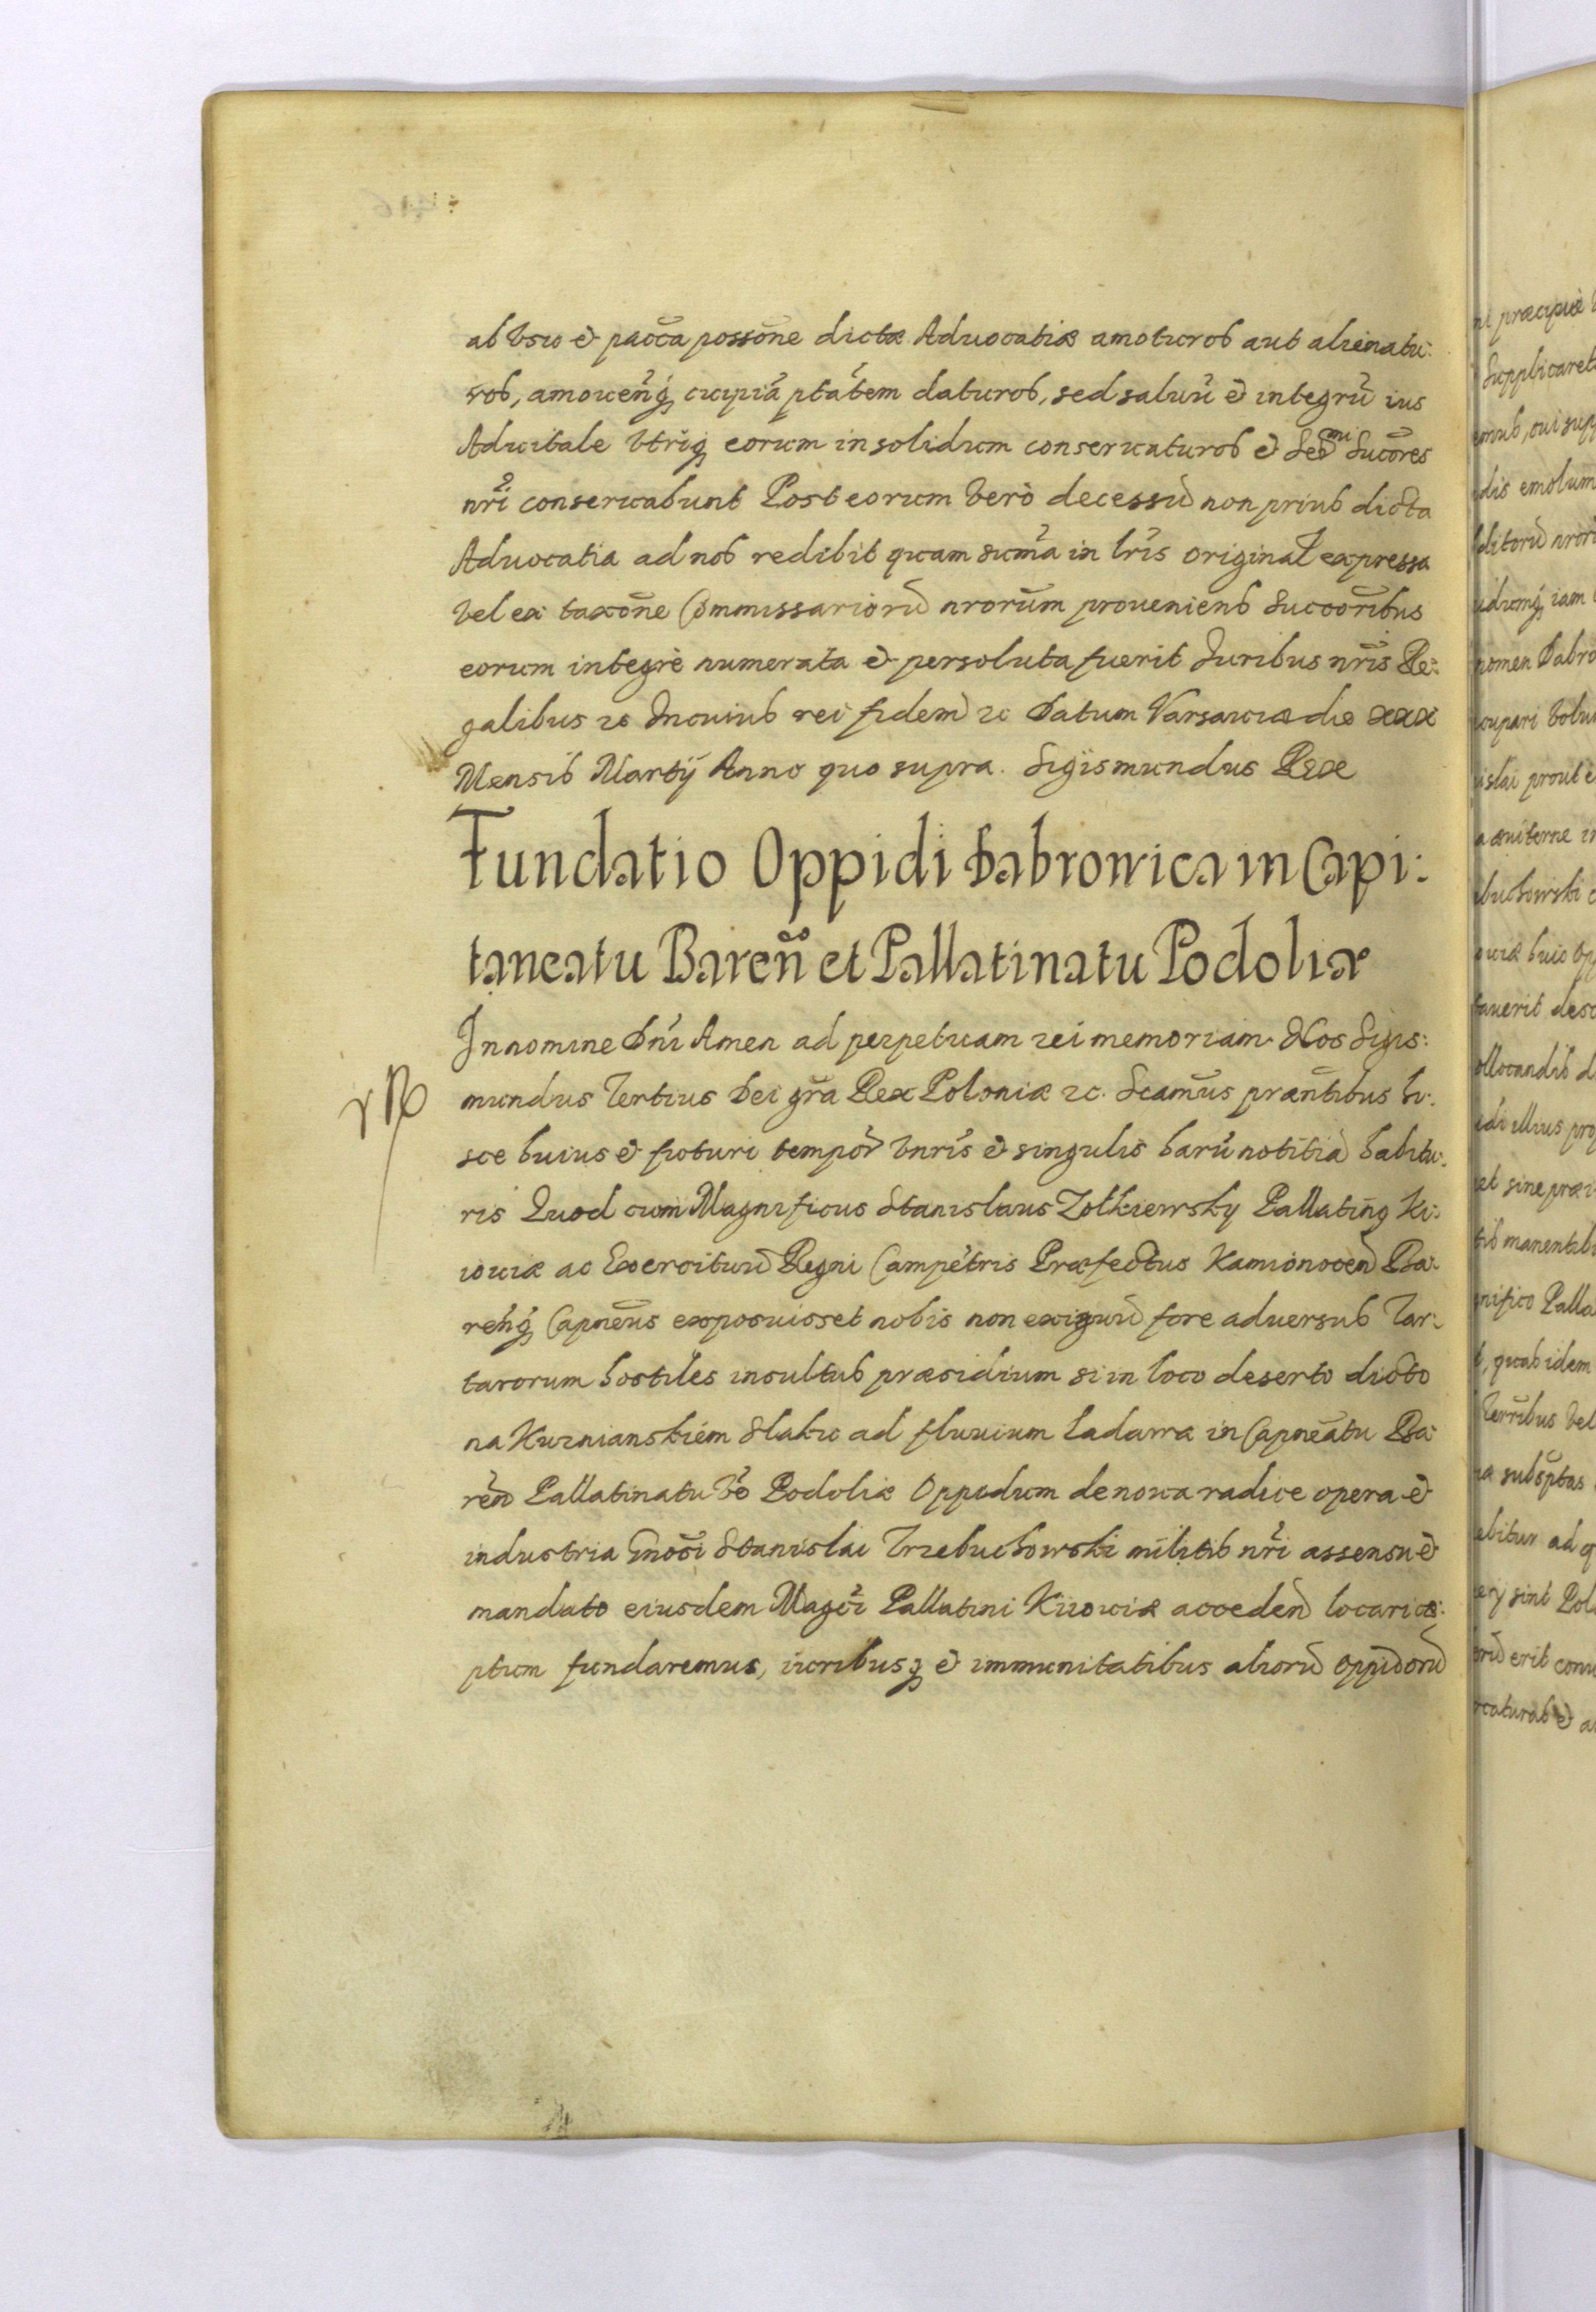 ab Vsu et pacca possone dictæ Aduocatiæ amoturos aut alienatu:
ros, amouendiq; cuipia ptatem daturos, sed saluu et integru ius
Aducitale Vtriq; eorum in solidum conseruaturos et Sermi Succores
nri conseruabunt Post eorum Verò decessu non prius dicta
Aduocatia ad nos redibit quam suma in lris original expressa
Vel ex taxone Commissarioru nrorum proueniens Succoribus
eorum integrè numerata et persoluta fuerit Iuribus nris Re:
galibus etc In cuius rei fidem etc Datum Varsauiæ die xxx
Mensis Martij Anno quo supra. Sigismundus Rex
Fundatio Oppidi Dabrowica in Capi:
taneatu Baren et Pallatinatu Podoliæ
In nomine Dni Amen ad perpetuam rei memoriam. Nos Sigis:
mundus Tertius Dei gra Rex Poloniæ etc. Scamus præntibus li:
sce huius et futuri tempor Vnris et singulis haru notitia habitu:
ris Quod cum Magnificus Stanislaus Zolkiewsky Pallating Ki:
iouiæ ac Exercituu Regni Campetris Præfectus Kamionocen Ba:
renq; Capneus exposuisset nobis non exiguu fore aduersus Tar:
tarorum hostiles insultus præsidium si in loco deserto dicto
na Kuznianskiem Slaku ad fluuium Ladawa in Capneatu Ba:
ren Pallatinatu Vo Podoliæ Oppidum de noua radice opera et
industria Gnosi Stanislai Trzebuchowski militis nri assensu et
mandato eiusdem Magci Pallatini Kiiouiæ acceden locari cæ:
ptum fundaremus, iuribusq; et immunitatibus alioru oppidoru